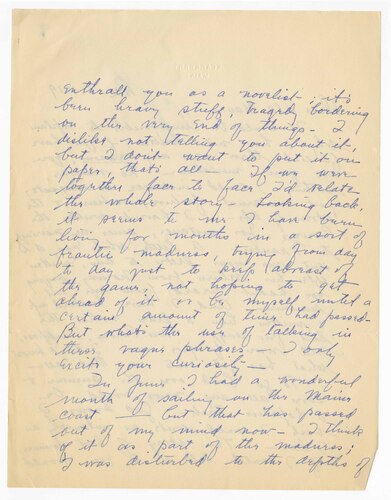 enthrall you as a novelist; it's
been heavy stuff, tragedy bordering
on the very end of things - I
dislike not telling you about it,
but I don't want to put it on
paper, that's all - If we were
together face to face I'd relate
the whole story - Looking back,
it seems to me I have been
living for months in a sort of
frantic madness, trying from day
to day just to keep abreast of
the game, not hoping to get
ahead of it or be myself until a
certain amount of time had passed -
But what's the use of talking in
these vague phrases - I only
excite your curiosity -
In June I had a wonderful
month of sailing on the Maine
coast - but that has passed
out of my mind now - I think
of it as part of the madness;
I was disturbed to the depths of